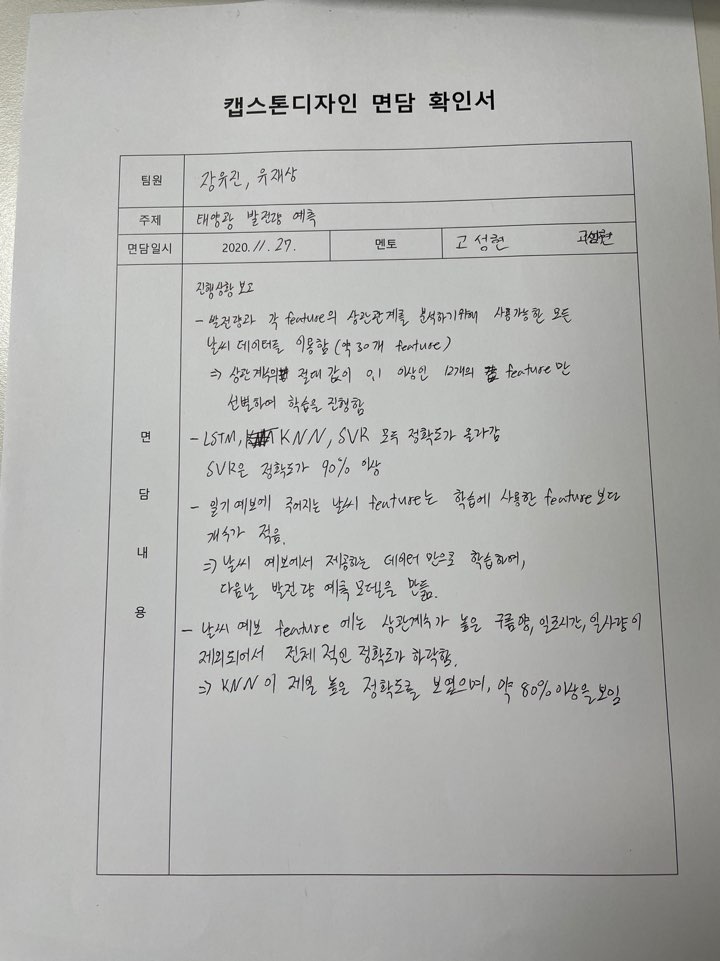 캡스톤디자인 면담 확인서
팀원 장유진, 유재상
주제 태양광 발전량 예측
면담일시 2020. 11. 27. 멘토 고성현 고성현
면담내용
진행상황 보고
- 발전량과 각 feature의 상관관계를 분석하기위해 사용가능한 모든
날씨 데이터를 이용함 (약 30개 feature)
⇒ 상관계수의 절대값이 0.1 이상인 12개의 feature만
선별하여 학습을 진행함
- LSTM, KNN, SVR 모두 정확도가 올라감
SVR은 정확도가 90% 이상
- 일기예보에 주어지는 날씨 feature는 학습에 사용한 feature보다
개수가 적음.
⇒ 날씨 예보에서 제공하는 데이터 만으로 학습하여,
다음날 발전량 예측 모델을 만듦.
- 날씨 예보 feature에는 상관계수가 높은 구름양, 일조시간, 일사량이
제외되어서 전체적인 정확도가 하락함.
⇒ KNN이 제일 높은 정확도를 보였으며, 약 80% 이상을 보임